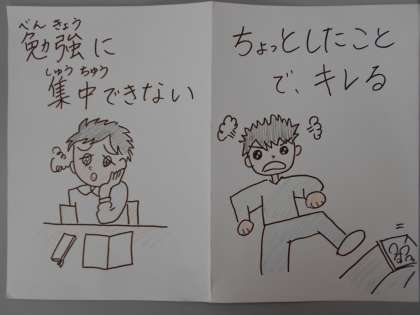 べんきょう
勉強に
しゅうちゅう
集中できない
ちょっとしたこと
で、キレる